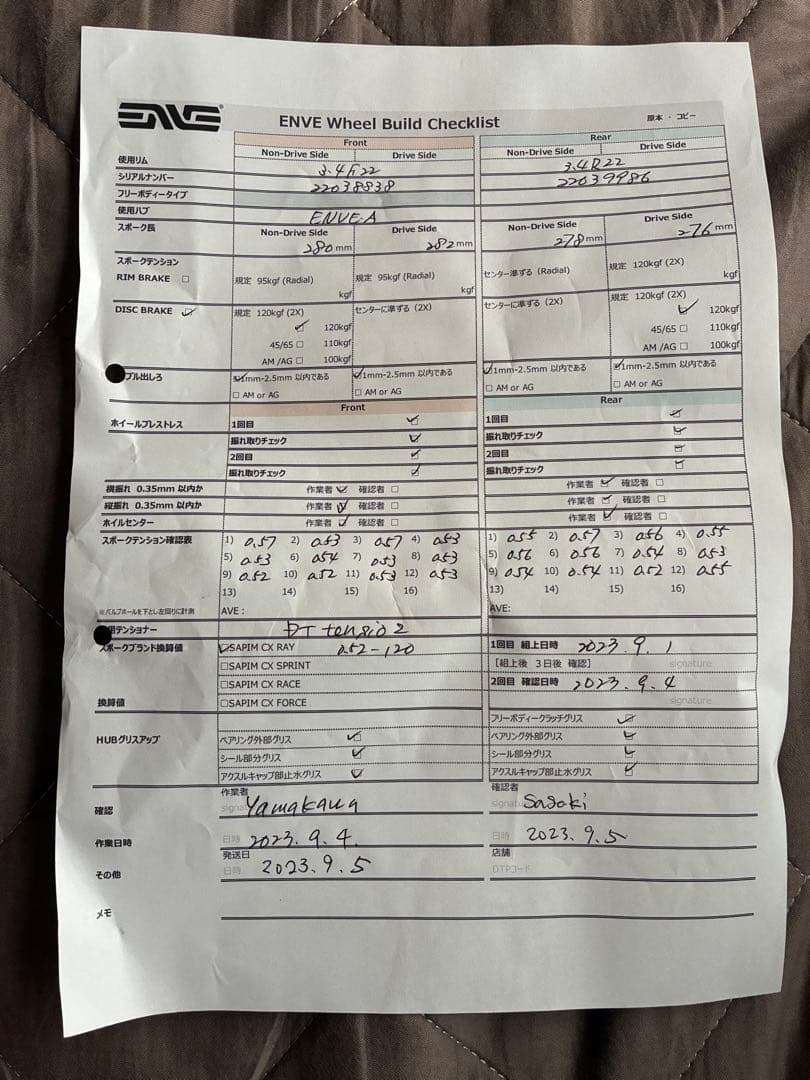 ENVE
ENVE Wheel Build Checklist
原本 ・ コピー
Front
Rear
Non-Drive Side Drive Side Non-Drive Side Drive Side
使用リム 3.4F22 3.4R22
シリアルナンバー 22038838 22039986
フリーボディータイプ
使用ハブ ENVE.A
スポーク長 Non-Drive Side Drive Side Non-Drive Side Drive Side
280mm 282mm 278mm 276mm
スポークテンション
RIM BRAKE □ 規定 95kgf (Radial) 規定 95kgf (Radial) センター準ずる (Radial) 規定 120kgf (2X)
kgf kgf kgf
DISC BRAKE ☑ 規定 120kgf (2X) センターに準ずる (2X) センターに準ずる (2X) 規定 120kgf (2X)
☑ 120kgf ☑ 120kgf
45/65 □ 110kgf 45/65 □ 110kgf
AM /AG □ 100kgf AM /AG □ 100kgf
プル出しろ ☑1mm-2.5mm 以内である ☑1mm-2.5mm 以内である ☑1mm-2.5mm 以内である ☑1mm-2.5mm 以内である
□ AM or AG □ AM or AG □ AM or AG □ AM or AG
Front Rear
ホイールプレストレス 1回目 ☑ 1回目 ☑
振れ取りチェック ☑ 振れ取りチェック ☑
2回目 ☑ 2回目 ☑
振れ取りチェック ☑ 振れ取りチェック ☑
横振れ 0.35mm 以内か 作業者 ☑ 確認者 □ 作業者 ☑ 確認者 □
縦振れ 0.35mm 以内か 作業者 ☑ 確認者 □ 作業者 ☑ 確認者 □
ホイルセンター 作業者 ☑ 確認者 □ 作業者 ☑ 確認者 □
スポークテンション確認表 1) 0.57 2) 0.53 3) 0.57 4) 0.53 1) 0.55 2) 0.57 3) 0.56 4) 0.55
5) 0.53 6) 0.54 7) 0.53 8) 0.53 5) 0.56 6) 0.56 7) 0.54 8) 0.53
9) 0.52 10) 0.52 11) 0.53 12) 0.53 9) 0.54 10) 0.54 11) 0.52 12) 0.55
13) 14) 15) 16) 13) 14) 15) 16)
※バルブホールを下とし左回りに計測 AVE : AVE:
用テンショナー DT tensio 2
スポークブランド換算値 ☑SAPIM CX RAY 0.52-120 1回目 組上日時 2023. 9. 1
□SAPIM CX SPRINT [組上後 3日後 確認] signature
□SAPIM CX RACE 2回目 確認日時 2023. 9. 4
換算値 □SAPIM CX FORCE signature
フリーボディークラッチグリス ☑
HUBグリスアップ ベアリング外部グリス ☑ ベアリング外部グリス ☑
シール部分グリス ☑ シール部分グリス ☑
アクスルキャップ部止水グリス ☑ アクスルキャップ部止水グリス ☑
作業者 確認者
確認 Yamakawa Sasaki
作業日時 日時 2023. 9. 4. 日時 2023. 9.5
発送日 店舗
その他 日時 2023. 9. 5 DTPコード
メモ